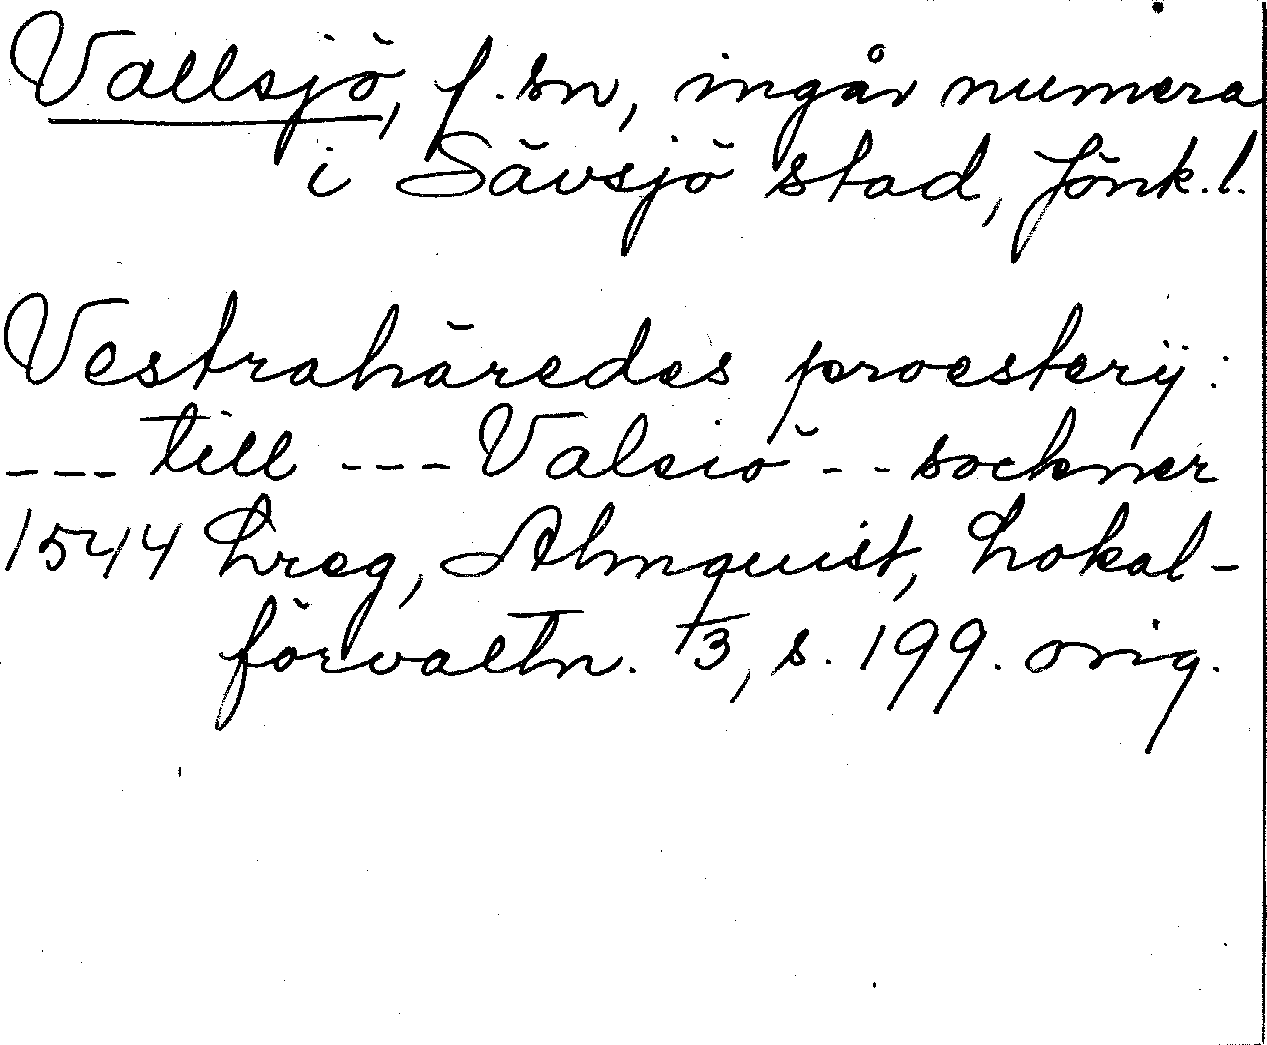 Vallsjö, f. sn, ingår numera
i Sävsjö stad, Jönk.l.
Vestrahäredes proesterij:
--- till --- Valsiö -- sockner
1544 Lreg, Almquist, Lokal-
förvaltn. 3, s. 199. orig.